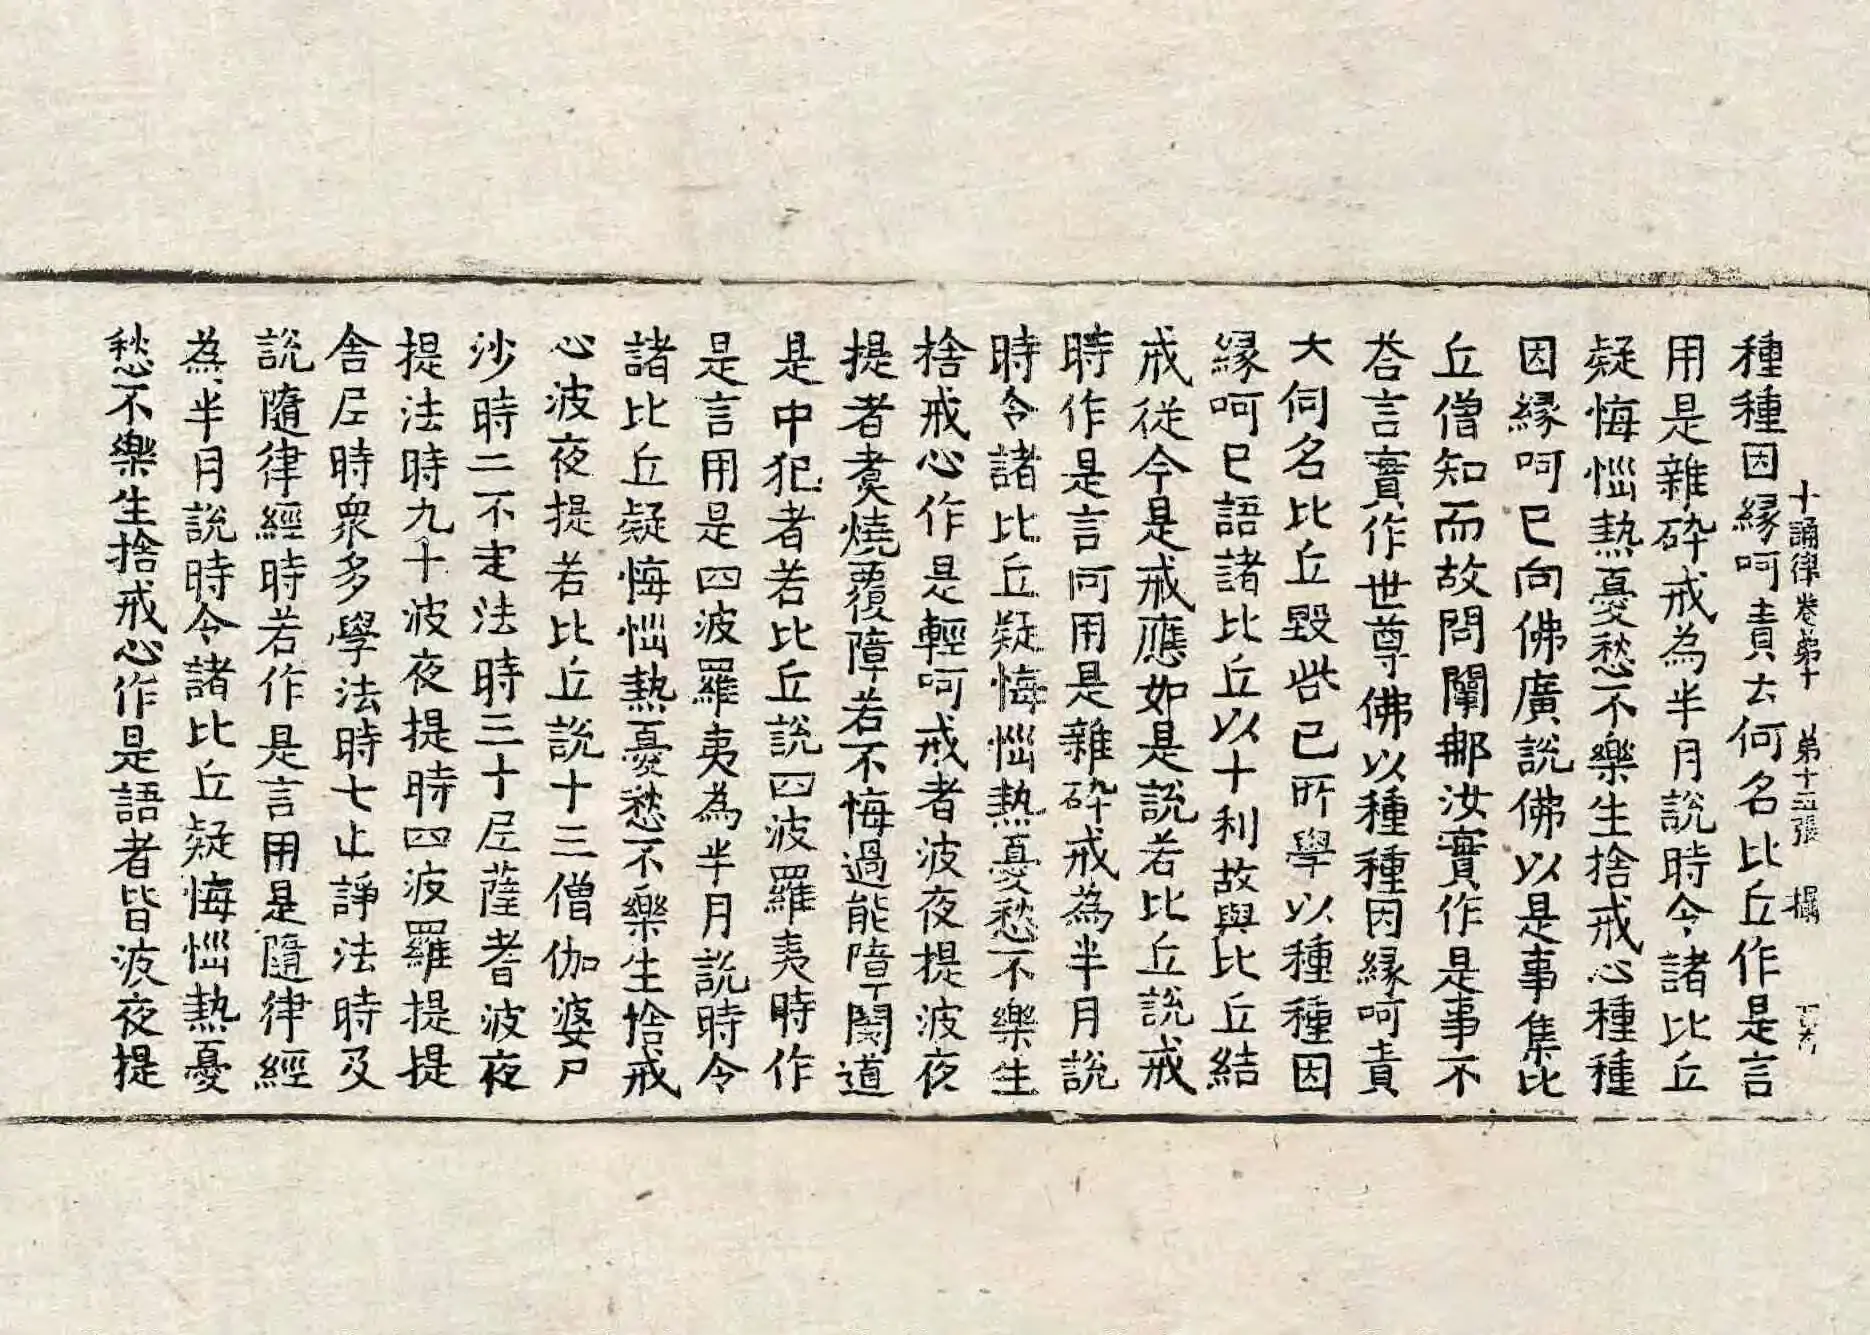 十誦律卷第十　第十五張　攝
種種因縁呵責云何名比丘作是言
用是雜碎戒為半月說時令諸比丘
疑悔惱熱憂愁不樂生捨戒心種種
因縁呵已向佛廣說佛以是事集比
丘僧知而故問闡那汝實作是事不
荅言實作世尊佛以種種因縁呵責
云何名比丘毀呰已所學以種種因
縁呵已語諸比丘以十利故與比丘結
戒從今是戒應如是說若比丘說戒
時作是言何用是雜碎戒為半月說
時令諸比丘疑悔惱熱憂愁不樂生
捨戒心作是輕呵戒者波夜提波夜
提者煑燒覆障若不悔過能障閡道
是中犯者若比丘說四波羅夷時作
是言用是四波羅夷為半月說時令
諸比丘疑悔惱熱憂愁不樂生捨戒
心波夜提若比丘說十三僧伽婆尸
沙時二不定法時三十尼薩耆波夜
提法時九十波夜提時四波羅提提
舍尼時衆多學法時七止諍法時及
說隨律經時若作是言用是隨律經
為半月說時令諸比丘疑悔惱熱憂
愁不樂生捨戒心作是語者皆波夜提